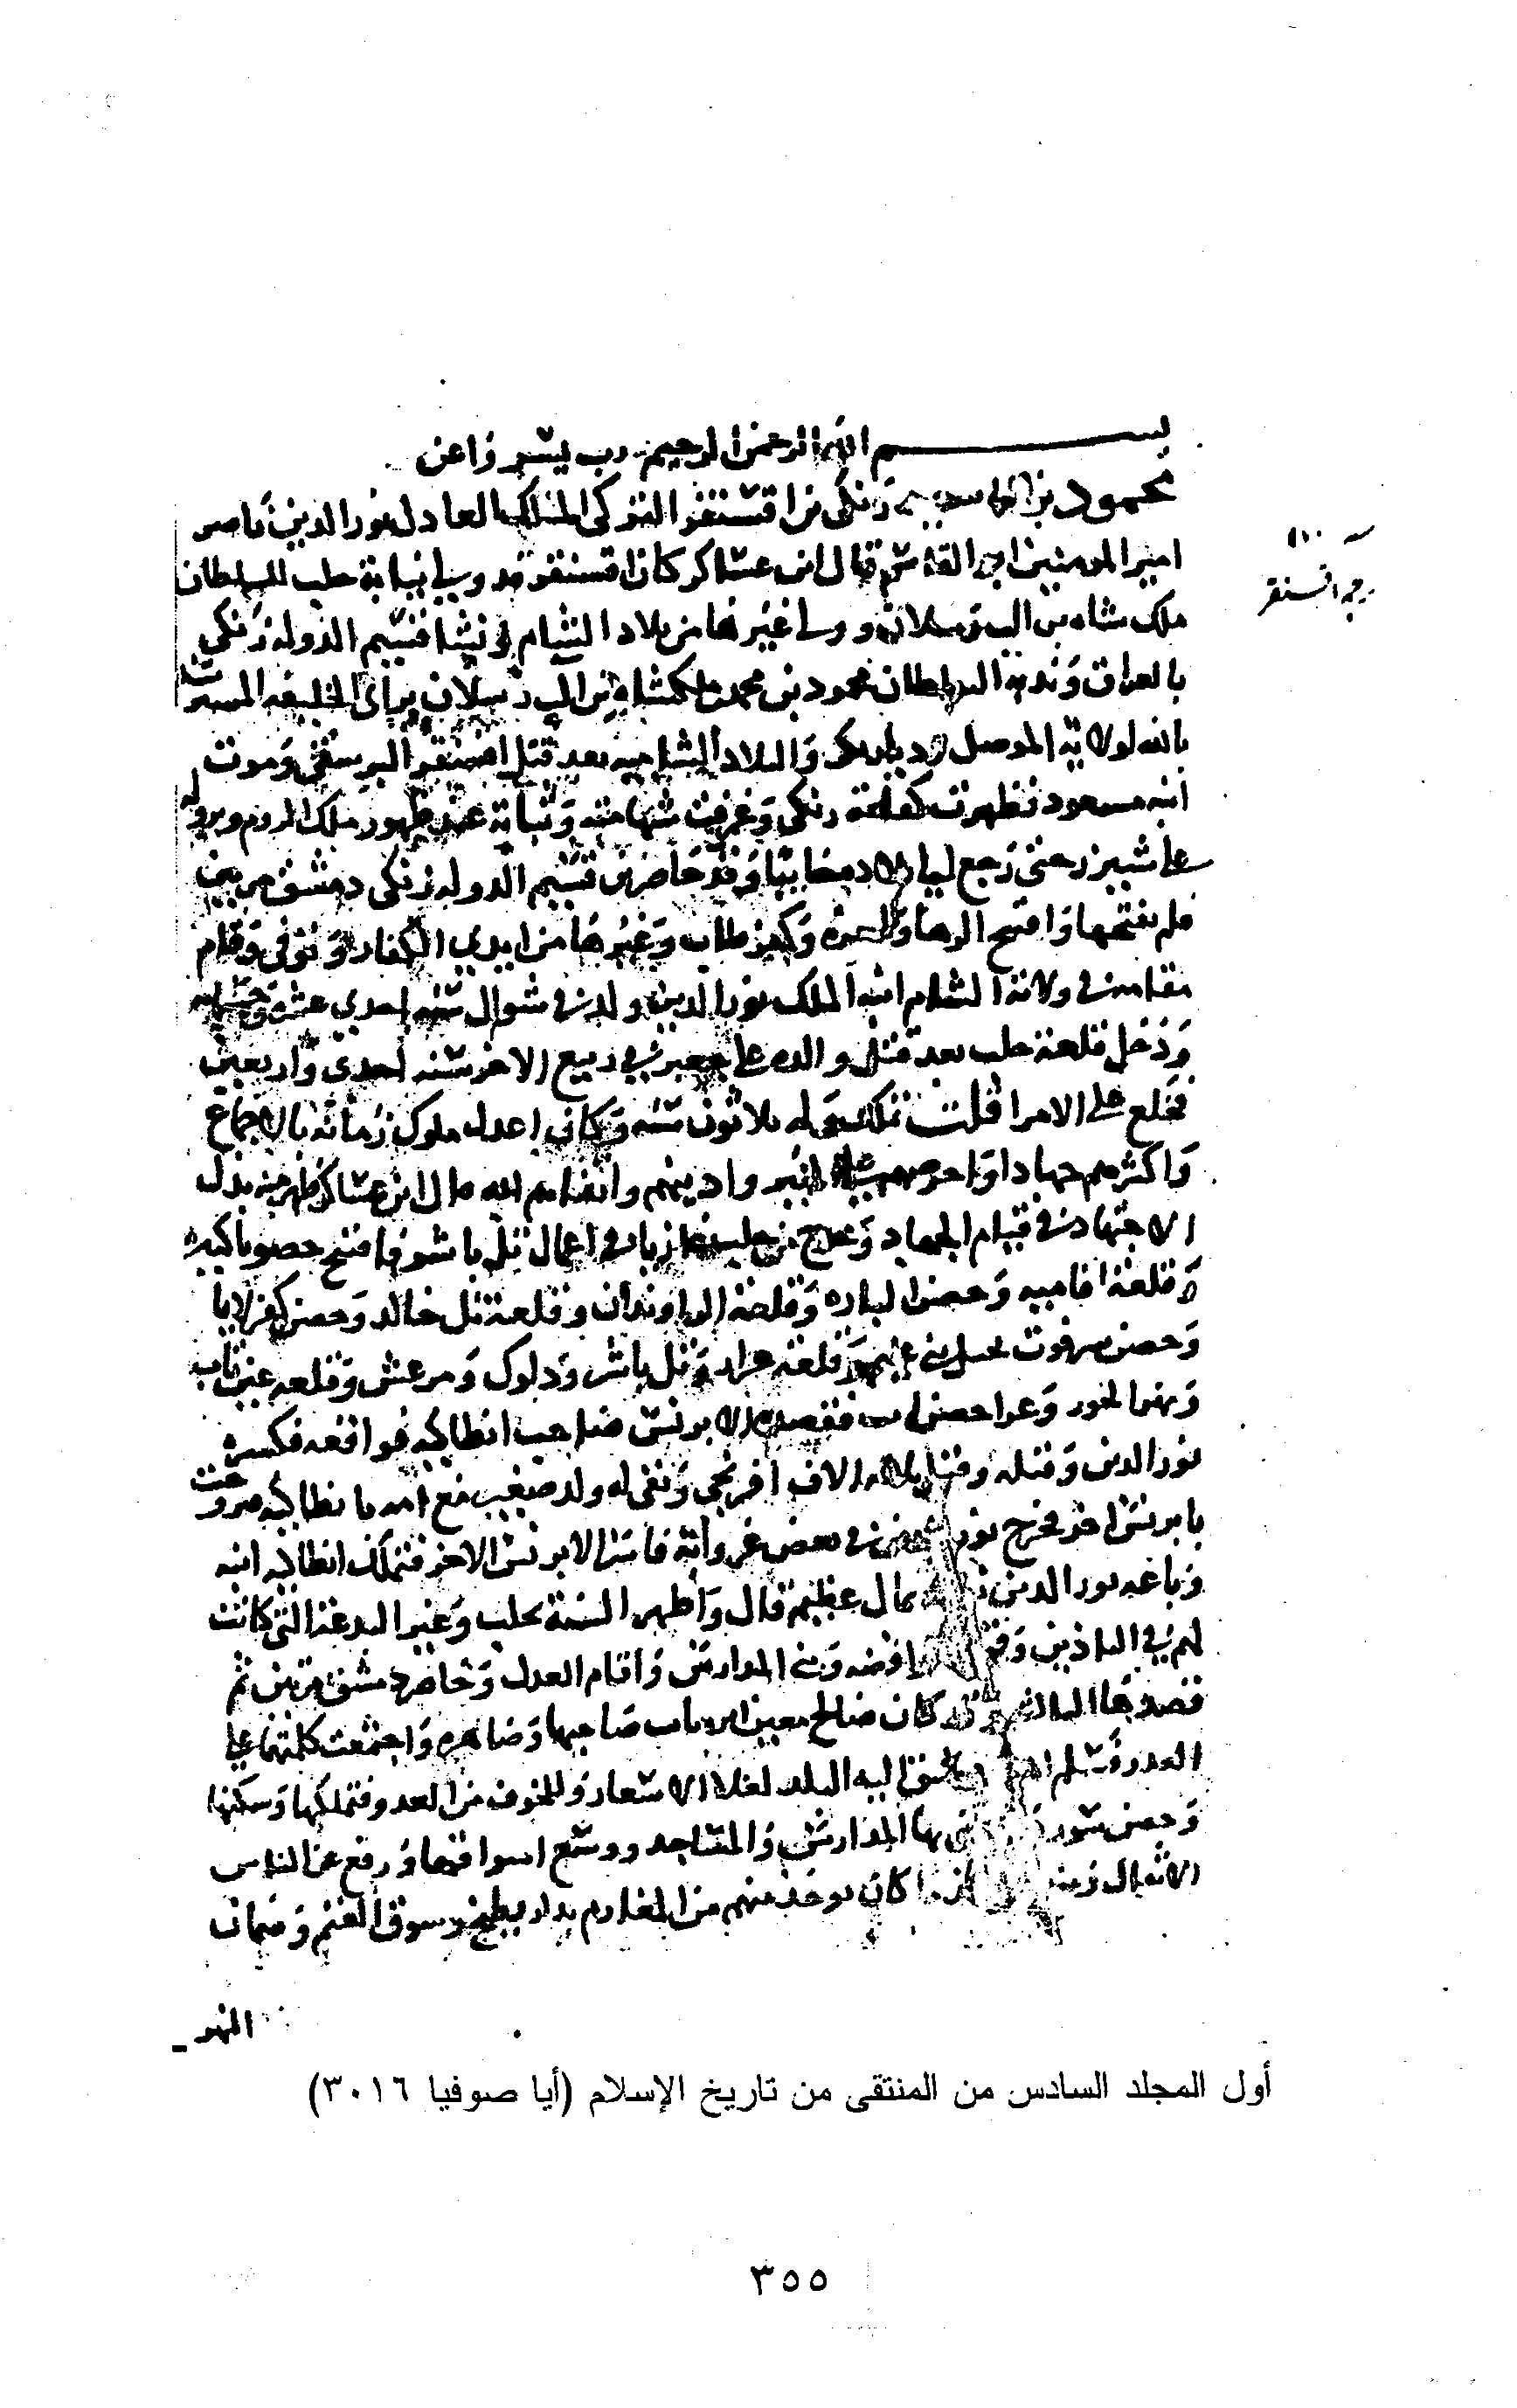 بسم الله الرحمن الرحيم رب يسر واعن
محمود بن زنكي بن اقسنقر التركي الملك العادل نور الدين ناصر
امير المومنين ابو القاسم قال ابن عساكر كان اقسنقر قد ولي نيابة حلب للسلطان
ملك شاه بن الب رسلان وولي غيرها من بلاد الشام ونشا قسيم الدوله زنكي
بالعراق وندبه السلطان محمود بن محمد بن ملكشاه بن الب رسلان براي الخليفه المسترشد
بالله لولاية الموصل وديار بكر والبلاد الشاميه بعد قتل اقسنقر البرسقي وموت
ابنه مسعود فظهرت كفاءة زنكي وعرفت شهامته وثباته عند ظهور ملك الروم ونزوله
على شيزر حتى رجع الى بلاده خائبا وقد حاصر قسيم الدوله زنكي دمشق مرتين
فلم يفتحها وافتتح الرها والمعره وكفرطاب وغيرها من ايدي الكفار وتوفي وقام
مقامه في ولاية الشام ابنه الملك نور الدين ولد في شوال سنه احدى عشره وخمسمايه
ودخل قلعة حلب بعد قتل والده على جعبر في ربيع الاخر سنه احدى واربعين
فخلع على الامرا قلت تملك وله ثلاثون سنه وكان اعدل ملوك زمانه بالاجماع
واكثرهم جهادا واحرصهم على الخير وادينهم واتقاهم لله قال ابن عساكر ظهر منه بذل
الاجتهاد في قيام الجهاد وخرج من حلب غازيا في اعمال تل باشر فافتتح حصونا كثيره
وقلعة افاميه وحصن الباره وقلعة الراوندان وقلعة تل خالد وحصن كفرلاثا
وحصن بسرفوت بجبل بني عليم وقلعة عزاز وتل باشر ودلوك ومرعش وقلعه عين تاب
ونهر الجوز وغزا حصن انب فقصده الابرنس صاحب انطاكيه فواقعه فكسره
نور الدين وقتله وقتل ثلاثه الاف افرنجي وبقي له ولد صغير مع امه بانطاكيه فتزوجت
بابرنس اخر فخرج نور الدين في بعض غزواته فاسر الابرنس الاخر فتملك انطاكيه ابنه
وباعه نور الدين نفسه بمال عظيم قال واظهر السنة بحلب وغير البدعة التي كانت
لهم في التاذين وقمع الرافضه وبنى المدارس واقام العدل وحاصر دمشق مرتين ثم
قصدها الثالثه وقد كان صالح معين الدين انر صاحبها وصاهره واجتمعت كلمتهما على
العدو فسلم اهل دمشق اليه البلد لغلاء الاسعار وللخوف من العدو فتملكها وسكنها
وحصن سورها وبنى بها المدارس والمساجد ووسع اسواقها ورفع عن الناس
الاثقال ومنع من اخذ ما كان يوخذ منهم من المغارم بدار بطيخ وسوق الغنم وضمان
النهر
ترجمة اقسنقر
أول المجلد السادس من المنتقى من تاريخ الإسلام (أيا صوفيا ٣٠١٦)
٣٥٥